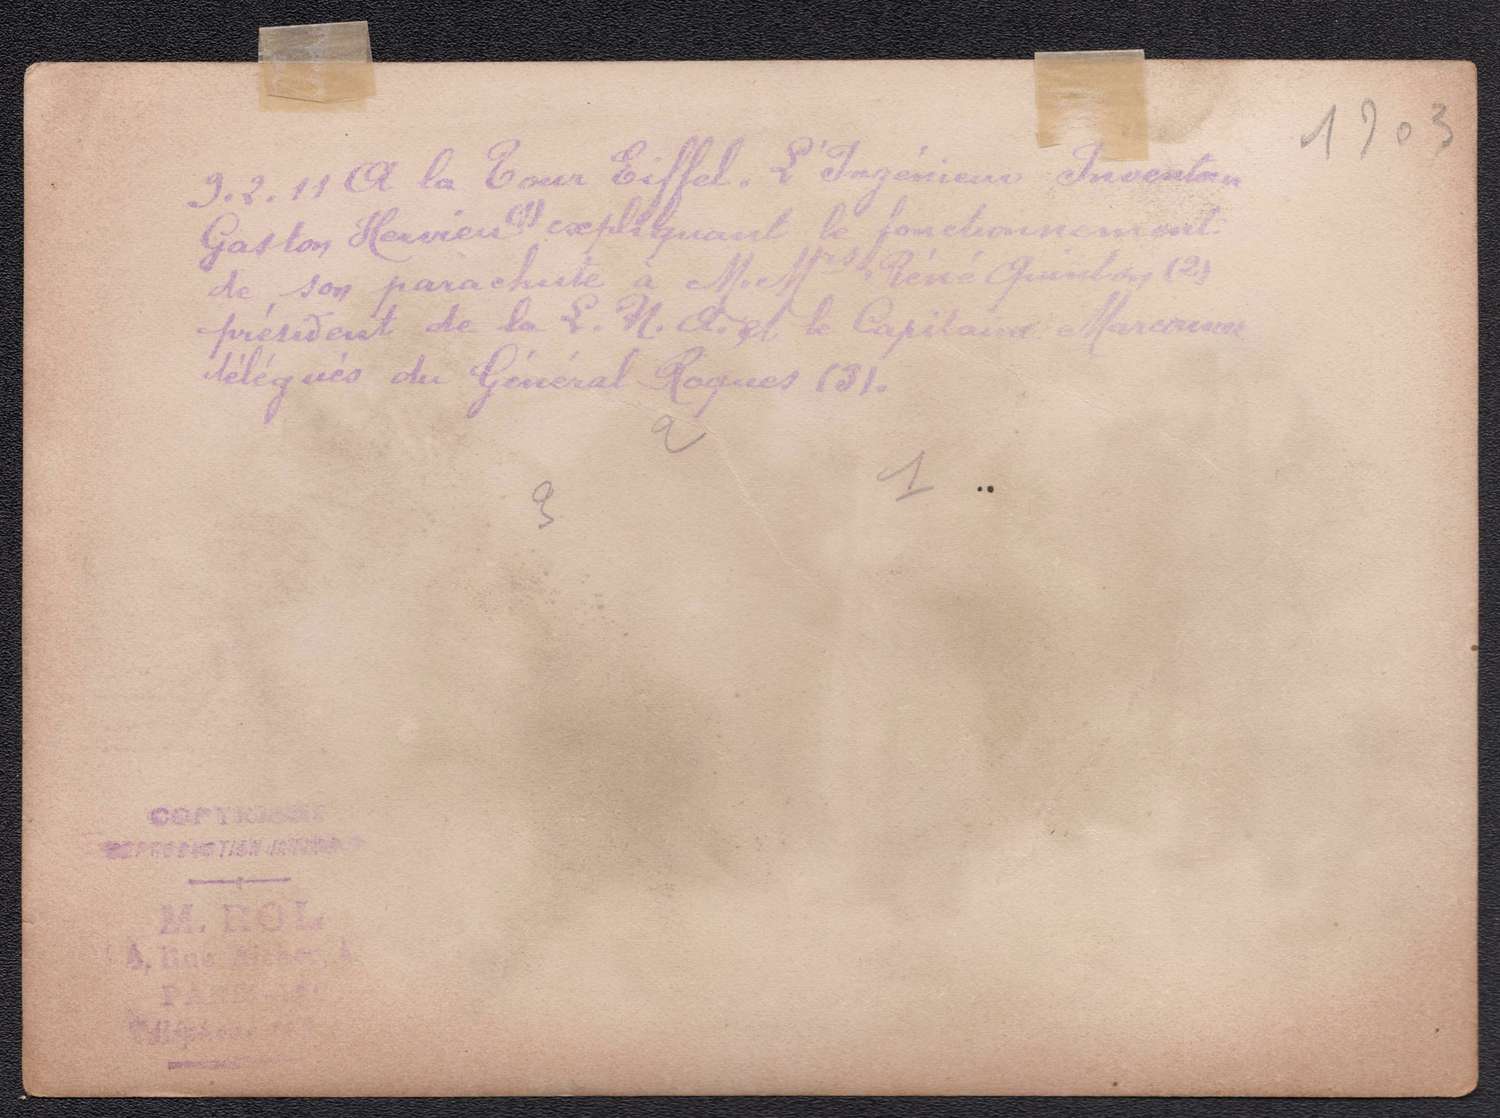 1903
9.2.11 A la Tour Eiffel. L'Ingénieur Inventeur
Gaston Hervieu (1) expliquant le fonctionnement
de son parachute à M.Mrs Réné Quinton (2)
président de la L.N.A. et le Capitaine
délégués du Général Roques (3).
2
1
3
COPYRIGHT
REPRODUCTION
M. ROL
4, Rue Richer, 4
PARIS
Téléphone